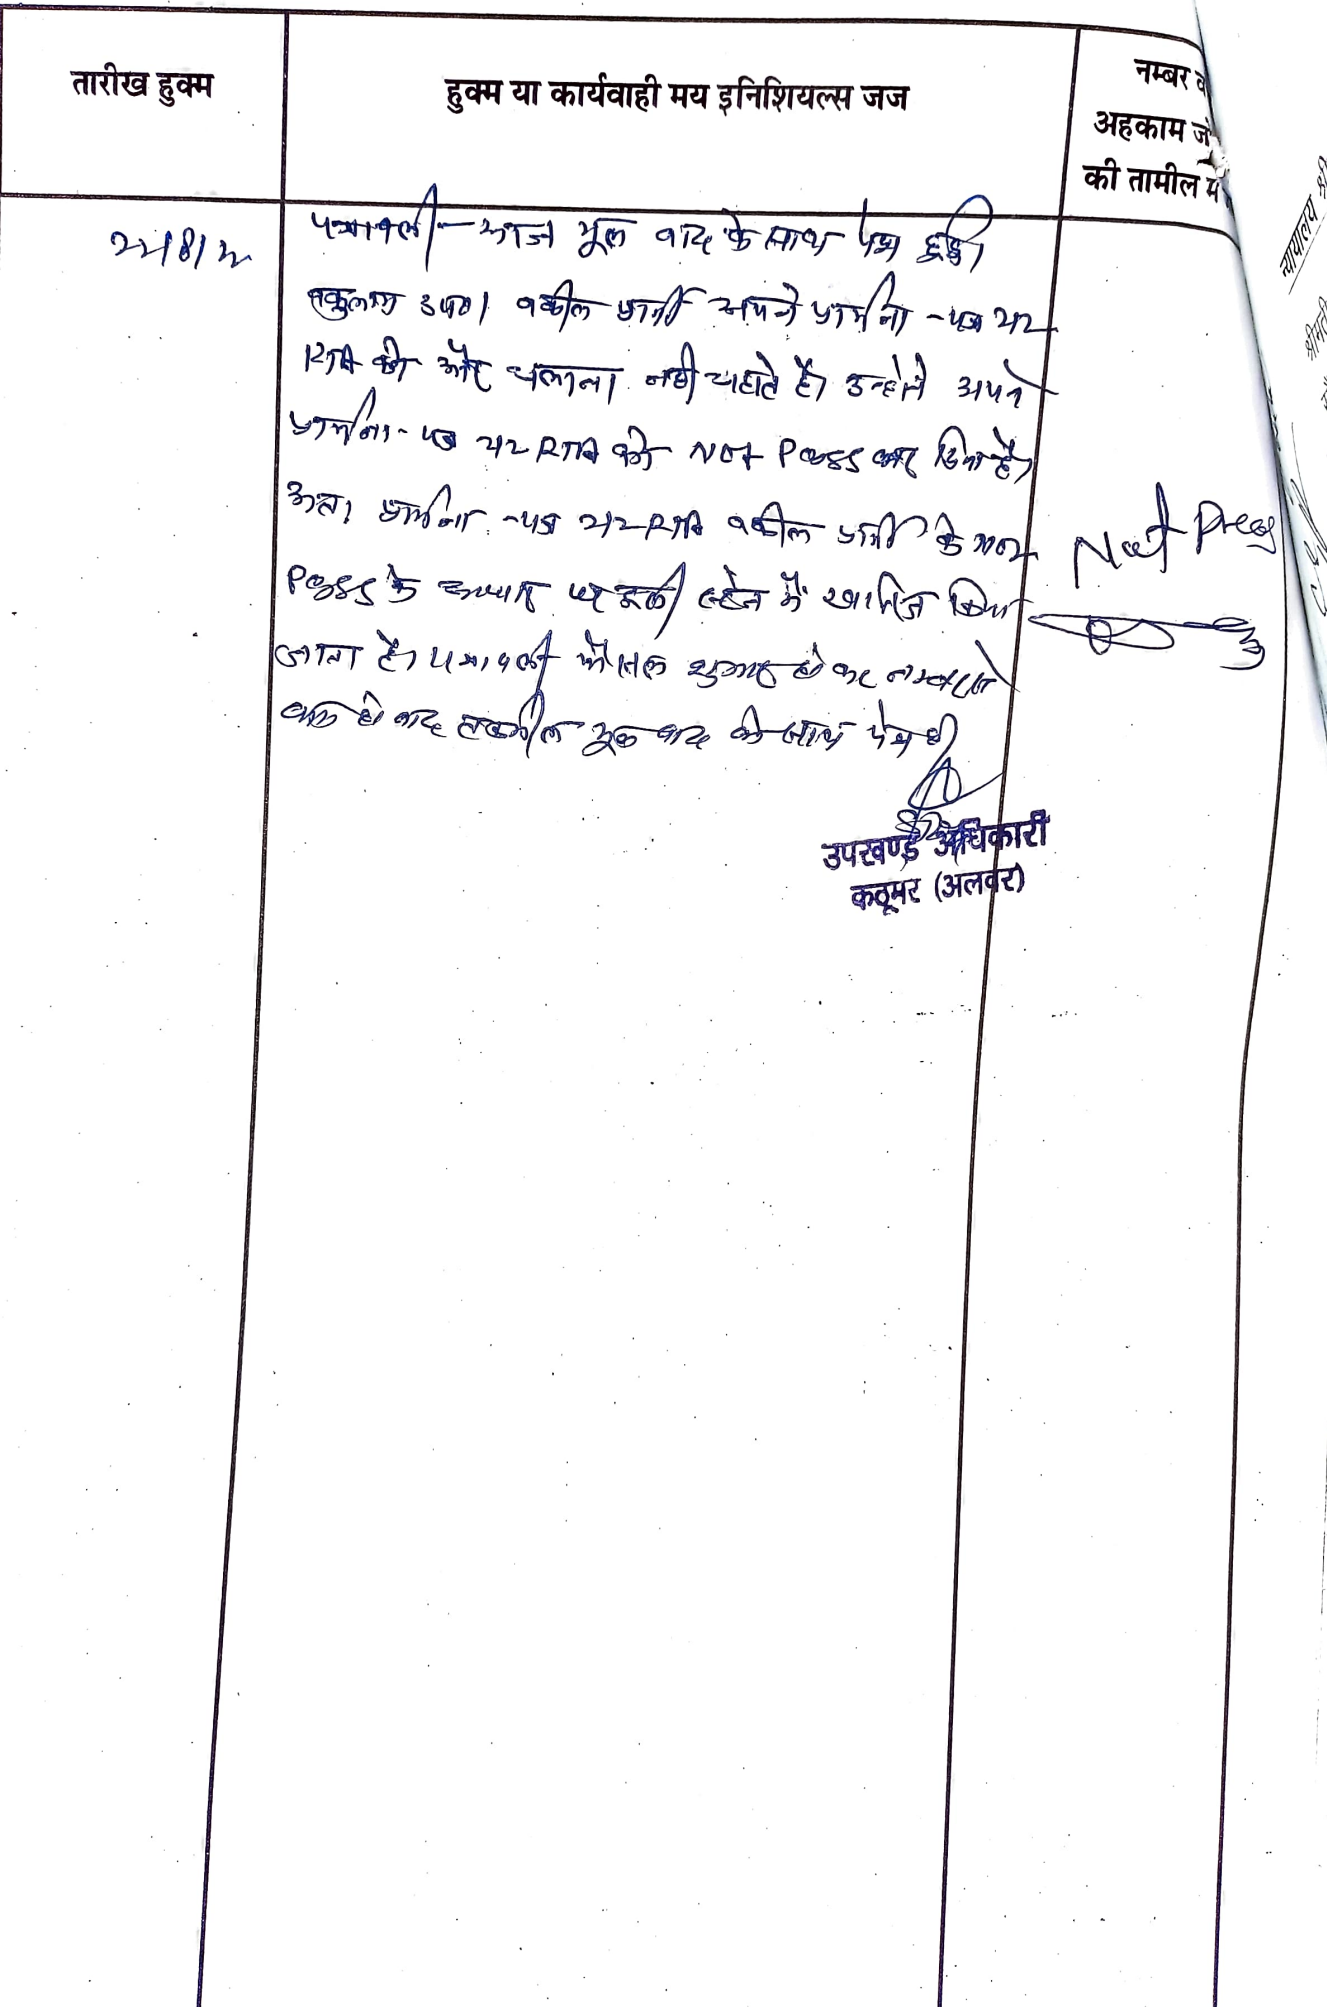 तारीख हुक्म
हुक्म या कार्यवाही मय इनिशियल्स जज
नम्बर व
अहकाम जो
की तामील में
पत्रावली आज मूल वाद के साथ पेश हुई।
वकुलाय उप०। वकील प्रार्थी अपने प्रार्थना-पत्र 212
RTA को और चलाना नही चाहते है। उन्होने अपने
प्रार्थना-पत्र 212 RTA को Not Press कर दिया है।
अतः प्रार्थना-पत्र 212 RTA वकील प्रार्थी के नाट
Press के आधार पर इसी स्टेज में खारिज किया
जाता है। पत्रावली फैसल शुमार हो कर नम्बर से
कम हो बाद तकमील मूल वाद के साथ पेश हो
Not Press
उपखण्ड अधिकारी
कठूमर (अलवर)
न्यायालय श्री
श्रीमती